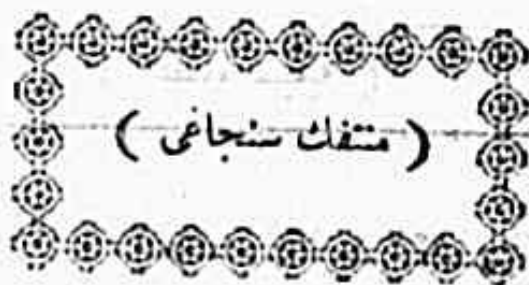 ( منتفك سنجاغی )